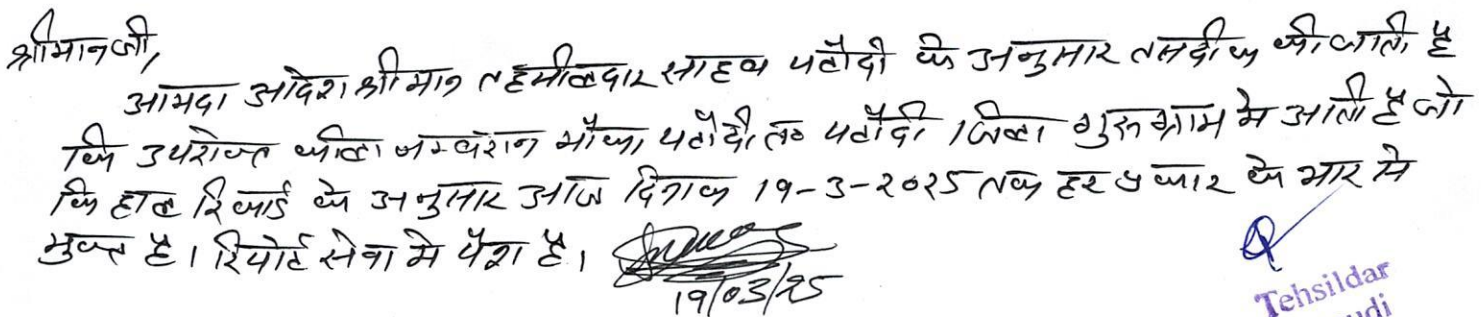 श्रीमानजी,
आमदा आदेश श्रीमान तहसीलदार साहब पटौदी के अनुसार तसदीक की जाती है
कि उपरोक्त कीला नम्बरान मौजा पटौदी, तह पटौदी जिला गुरुग्राम मे आती है जो
कि हाल रिकार्ड के अनुसार आज दिनाक 19-3-2025 तक हर प्रकार के भार से
मुक्त है। रिपोर्ट सेवा मे पेश है।
19/03/25
Tehsildar